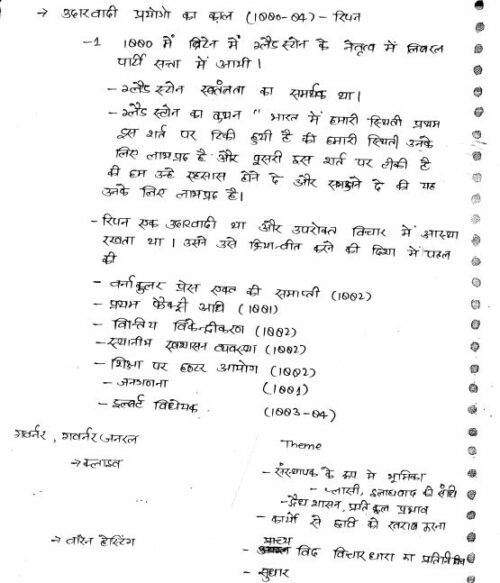 → उदारवादी प्रयोगो का काल (1880-84) - रिपन
-1 1880 में ब्रिटेन में ग्लैडस्टोन के नेतृत्व में लिबरल
पार्टी सत्ता में आयी।
- ग्लैडस्टोन स्वतंत्रता का समर्थक था।
- ग्लैडस्टोन का कथन " भारत में हमारी स्थिती प्रथम
इस शर्त पर टिकी हुयी है की हमारी स्थिती उनके
लिए लाभप्रद है और दूसरी इस शर्त पर टीकी है
की हम उन्हे एहसास होने दे और समझने दे की यह
उनके लिए लाभप्रद है।
- रिपन एक उदारवादी था और उपरोक्त विचार में आस्था
रखता था। उसने उसे क्रियान्वीत करने की दिशा में पहल
की
- वर्नाकुलर प्रेस एक्ट की समाप्ती (1882)
- प्रथम फैक्ट्री आधि (1881)
- वित्तिय विकेन्द्रीकरण (1882)
- स्थानीय स्वशासन व्यवस्था (1882)
- शिक्षा पर हण्टर आयोग (1882)
- जनगणना (1881)
- इल्बर्ट विधेयक (1883-84)
गवर्नर, गवर्नर जनरल
Theme
→ क्लाइव
- संस्थापक के रूप मे भूमिका
- प्लासी, इलाहाबाद की संधि
- द्वैध शासन, प्रतिकूल प्रभाव
- कार्यो से छवि को खराब करना
→ वारेन हेस्टिंग
- प्राच्य विद विचारधारा का प्रतिनिधि
- सुधार